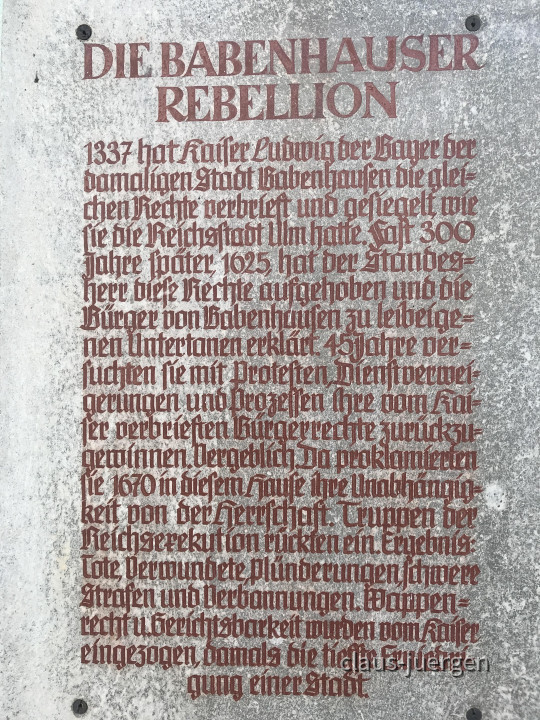 DIE BABENHAUSER
REBELLION
1337 hat Kaiser Ludwig der Bayer der
damaligen Stadt Babenhausen die glei-
chen Rechte verbrieft und gesiegelt wie
sie die Reichsstadt Ulm hatte. Fast 300
Jahre später, 1625, hat der Standes-
herr diese Rechte aufgehoben und die
Bürger von Babenhausen zu leibeige-
nen Untertanen erklärt. 45 Jahre ver-
suchten sie mit Protesten, Dienstverwei-
gerungen und Prozessen ihre vom Kai-
ser verbrieften Bürgerrechte zurückzu-
gewinnen. Vergeblich. Da proklamierten
sie 1670 in diesem Hause ihre Unabhängig-
keit von der Herrschaft. Truppen der
Reichsexekution rückten ein. Ergebnis:
Tote, Verwundete, Plünderungen, schwere
Strafen und Verbannungen. Wappen-
recht u. Gerichtsbarkeit wurden vom Kaiser
eingezogen, damals die tiefste Erniedri-
gung einer Stadt.
claus-juergen